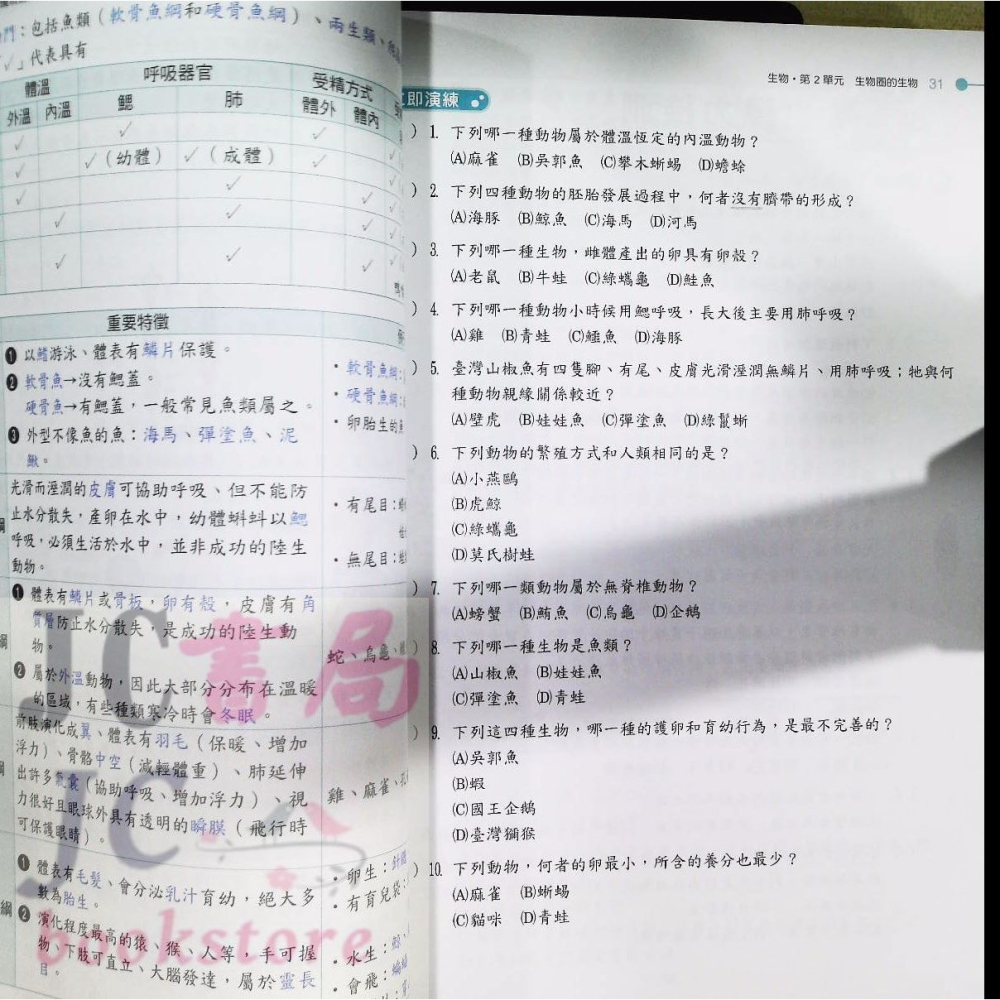 門：包括魚類（軟骨魚綱和硬骨魚綱）、兩生類、
✓」代表具有
體溫 呼吸器官 受精方式
外溫 內溫 鰓 肺 體外 體內
✓ ✓ ✓
✓ ✓（幼體） ✓（成體） ✓ ✓
✓ ✓ ✓ ✓
✓ ✓ ✓ ✓
✓ ✓ ✓ ✓
重要特徵
❶ 以鰭游泳、體表有鱗片保護。
❷ 軟骨魚→沒有鰓蓋。
硬骨魚→有鰓蓋，一般常見魚類屬之。
❸ 外型不像魚的魚：海馬、彈塗魚、泥
鰍。
・軟骨魚綱：
・硬骨魚綱：
・卵胎生的魚
光滑而溼潤的皮膚可協助呼吸、但不能防
止水分散失，產卵在水中，幼體蝌蚪以鰓
呼吸，必須生活於水中，並非成功的陸生
動物。
・有尾目：
・無尾目：
綱
❶ 體表有鱗片或骨板，卵有殼，皮膚有角
質層防止水分散失，是成功的陸生動
物。
❷ 屬於外溫動物，因此大部分分布在溫暖
的區域，有些種類寒冷時會冬眠。
蛇、烏龜、
綱
前肢演化成翼、體表有羽毛（保暖、增加
浮力）、骨骼中空（減輕體重）、肺延伸
出許多氣囊（協助呼吸、增加浮力）、視
力很好且眼球外具有透明的瞬膜（飛行時
可保護眼睛）。
雞、麻雀、孔
綱
❶ 體表有毛髮、會分泌乳汁育幼，絕大多
數為胎生。
❷ 演化程度最高的猿、猴、人等，手可握
物、下肢可直立、大腦發達，屬於靈長
目。
・卵生：針鼴
・有育兒袋：
・水生：鯨、
・會飛：蝙蝠
綱
JC書局
JC
bookstore
生物・第2單元 生物圈的生物 31
即演練
) 1. 下列哪一種動物屬於體溫恆定的內溫動物？
(A)麻雀 (B)吳郭魚 (C)攀木蜥蜴 (D)蟾蜍
) 2. 下列四種動物的胚胎發展過程中，何者沒有臍帶的形成？
(A)海豚 (B)鯨魚 (C)海馬 (D)河馬
) 3. 下列哪一種生物，雌體產出的卵具有卵殼？
(A)老鼠 (B)牛蛙 (C)綠蠵龜 (D)鮭魚
) 4. 下列哪一種動物小時候用鰓呼吸，長大後主要用肺呼吸？
(A)雞 (B)青蛙 (C)鱷魚 (D)海豚
) 5. 臺灣山椒魚有四隻腳、有尾、皮膚光滑溼潤無鱗片、用肺呼吸；牠與何
種動物親緣關係較近？
(A)壁虎 (B)娃娃魚 (C)彈塗魚 (D)綠鬣蜥
) 6. 下列動物的繁殖方式和人類相同的是？
(A)小燕鷗
(B)虎鯨
(C)綠蠵龜
(D)莫氏樹蛙
) 7. 下列哪一類動物屬於無脊椎動物？
(A)螃蟹 (B)鮪魚 (C)烏龜 (D)企鵝
) 8. 下列哪一種生物是魚類？
(A)山椒魚 (B)娃娃魚
(C)彈塗魚 (D)青蛙
) 9. 下列這四種生物，哪一種的護卵和育幼行為，是最不完善的？
(A)吳郭魚
(B)蝦
(C)國王企鵝
(D)臺灣獼猴
) 10. 下列動物，何者的卵最小，所含的養分也最少？
(A)麻雀 (B)蜥蜴
(C)貓咪 (D)青蛙